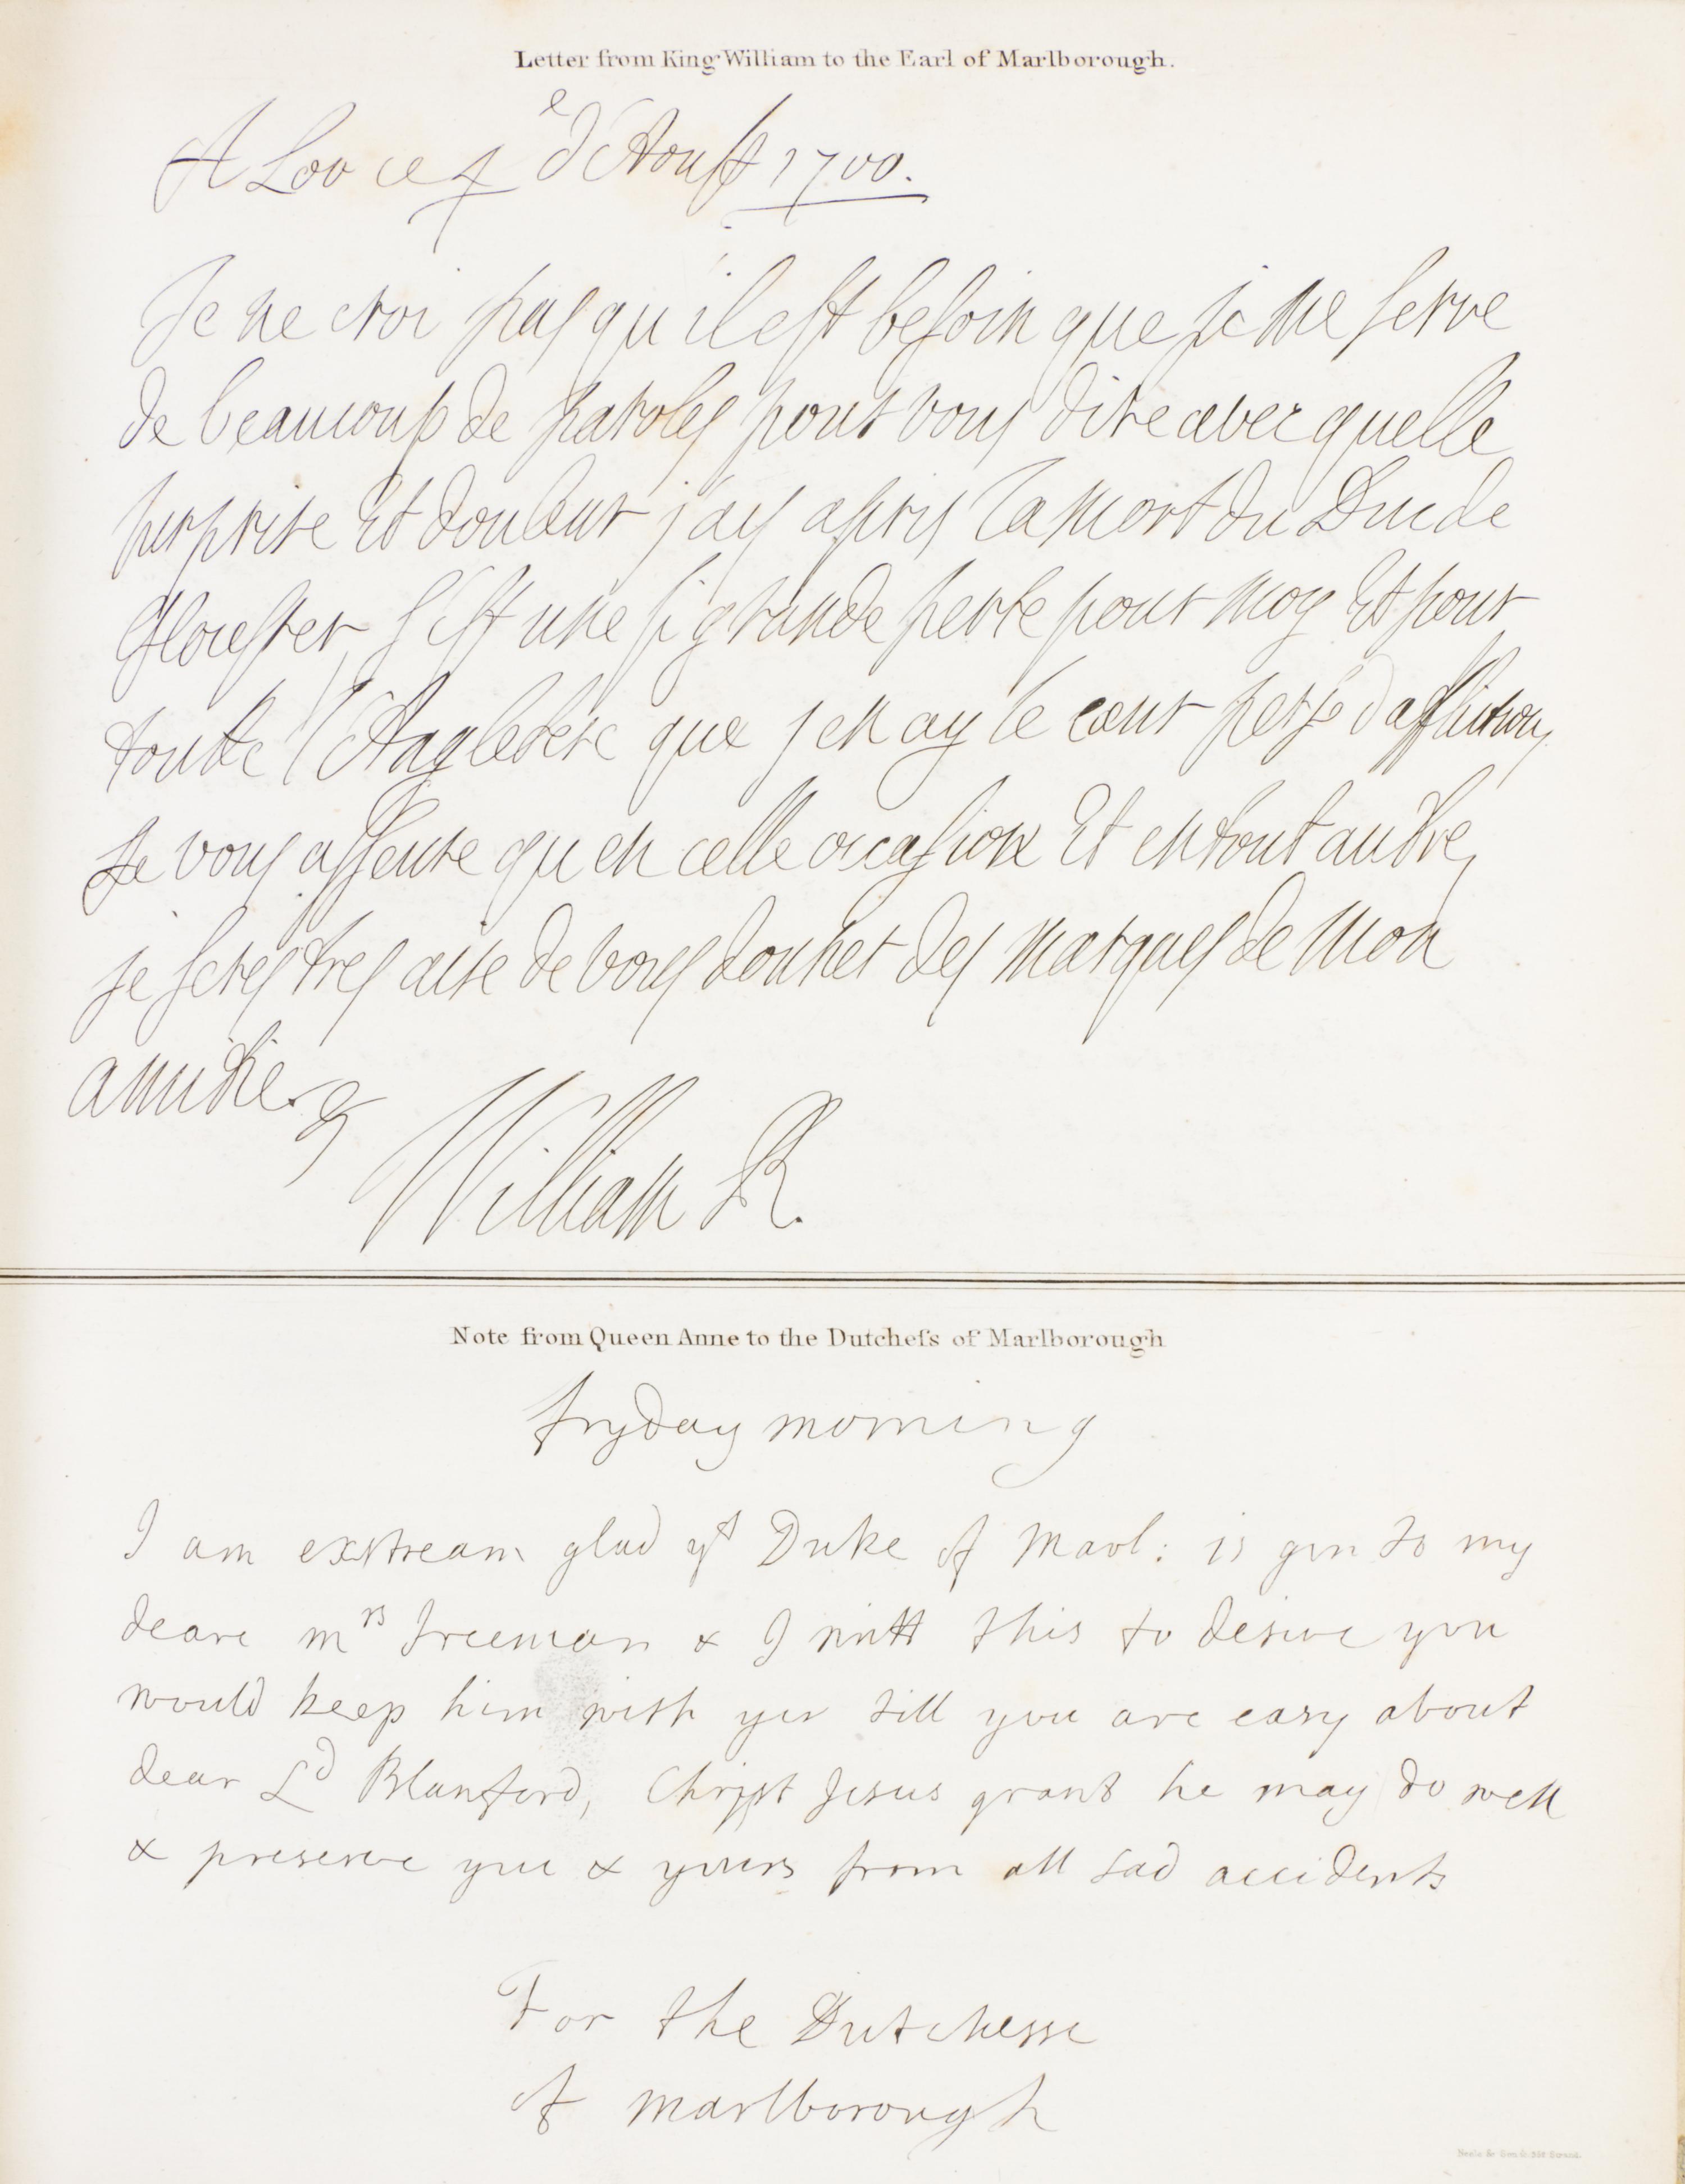 Letter from King William to the Earl of Marlborough.
A Loo ce 4e d'Aoust 1700.
Je ne croi pas qu il est besoin que je me serve
de beaucoup de paroles pour vous dire avec quelle
surprise Et douleur j'ay apris la mort du Duc de
Glocester s'est une si grande perte pour moy Et pour
toutte l'Angletere que j en ay le cœur perse d'affliction,
Je vous asseure qu en celle occasion Et en tout autre,
je seres tres aise de vous donner des marques de mon
amitie.
William R.
Note from Queen Anne to the Dutchefs of Marlborough
fryday morning
I am exstream glad yt Duke of Marl: is gon to my
deare mrs freeman & I writt this to desire you
would keep him with you till you are easy about
dear Ld Blanford, Christ Jesus grant he may do well
& preserve you & yours from all sad accidents
For the Dutchesse
of Marlborough
Neele & Son Sc. 352 Strand.